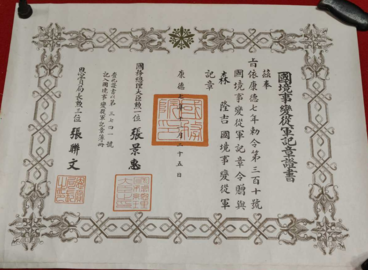 國境事變從軍記章證書
茲奉
康德七年勅令第三百十號
國境事變從軍記章令贈與
森 隆吉 國境事變從軍
記章
康德 年 月二十五日
國務總理大臣勲一位 張景惠
此證書 第 號
記入國境事變從軍記章簿冊
恩賞局長勲三位 張聯文